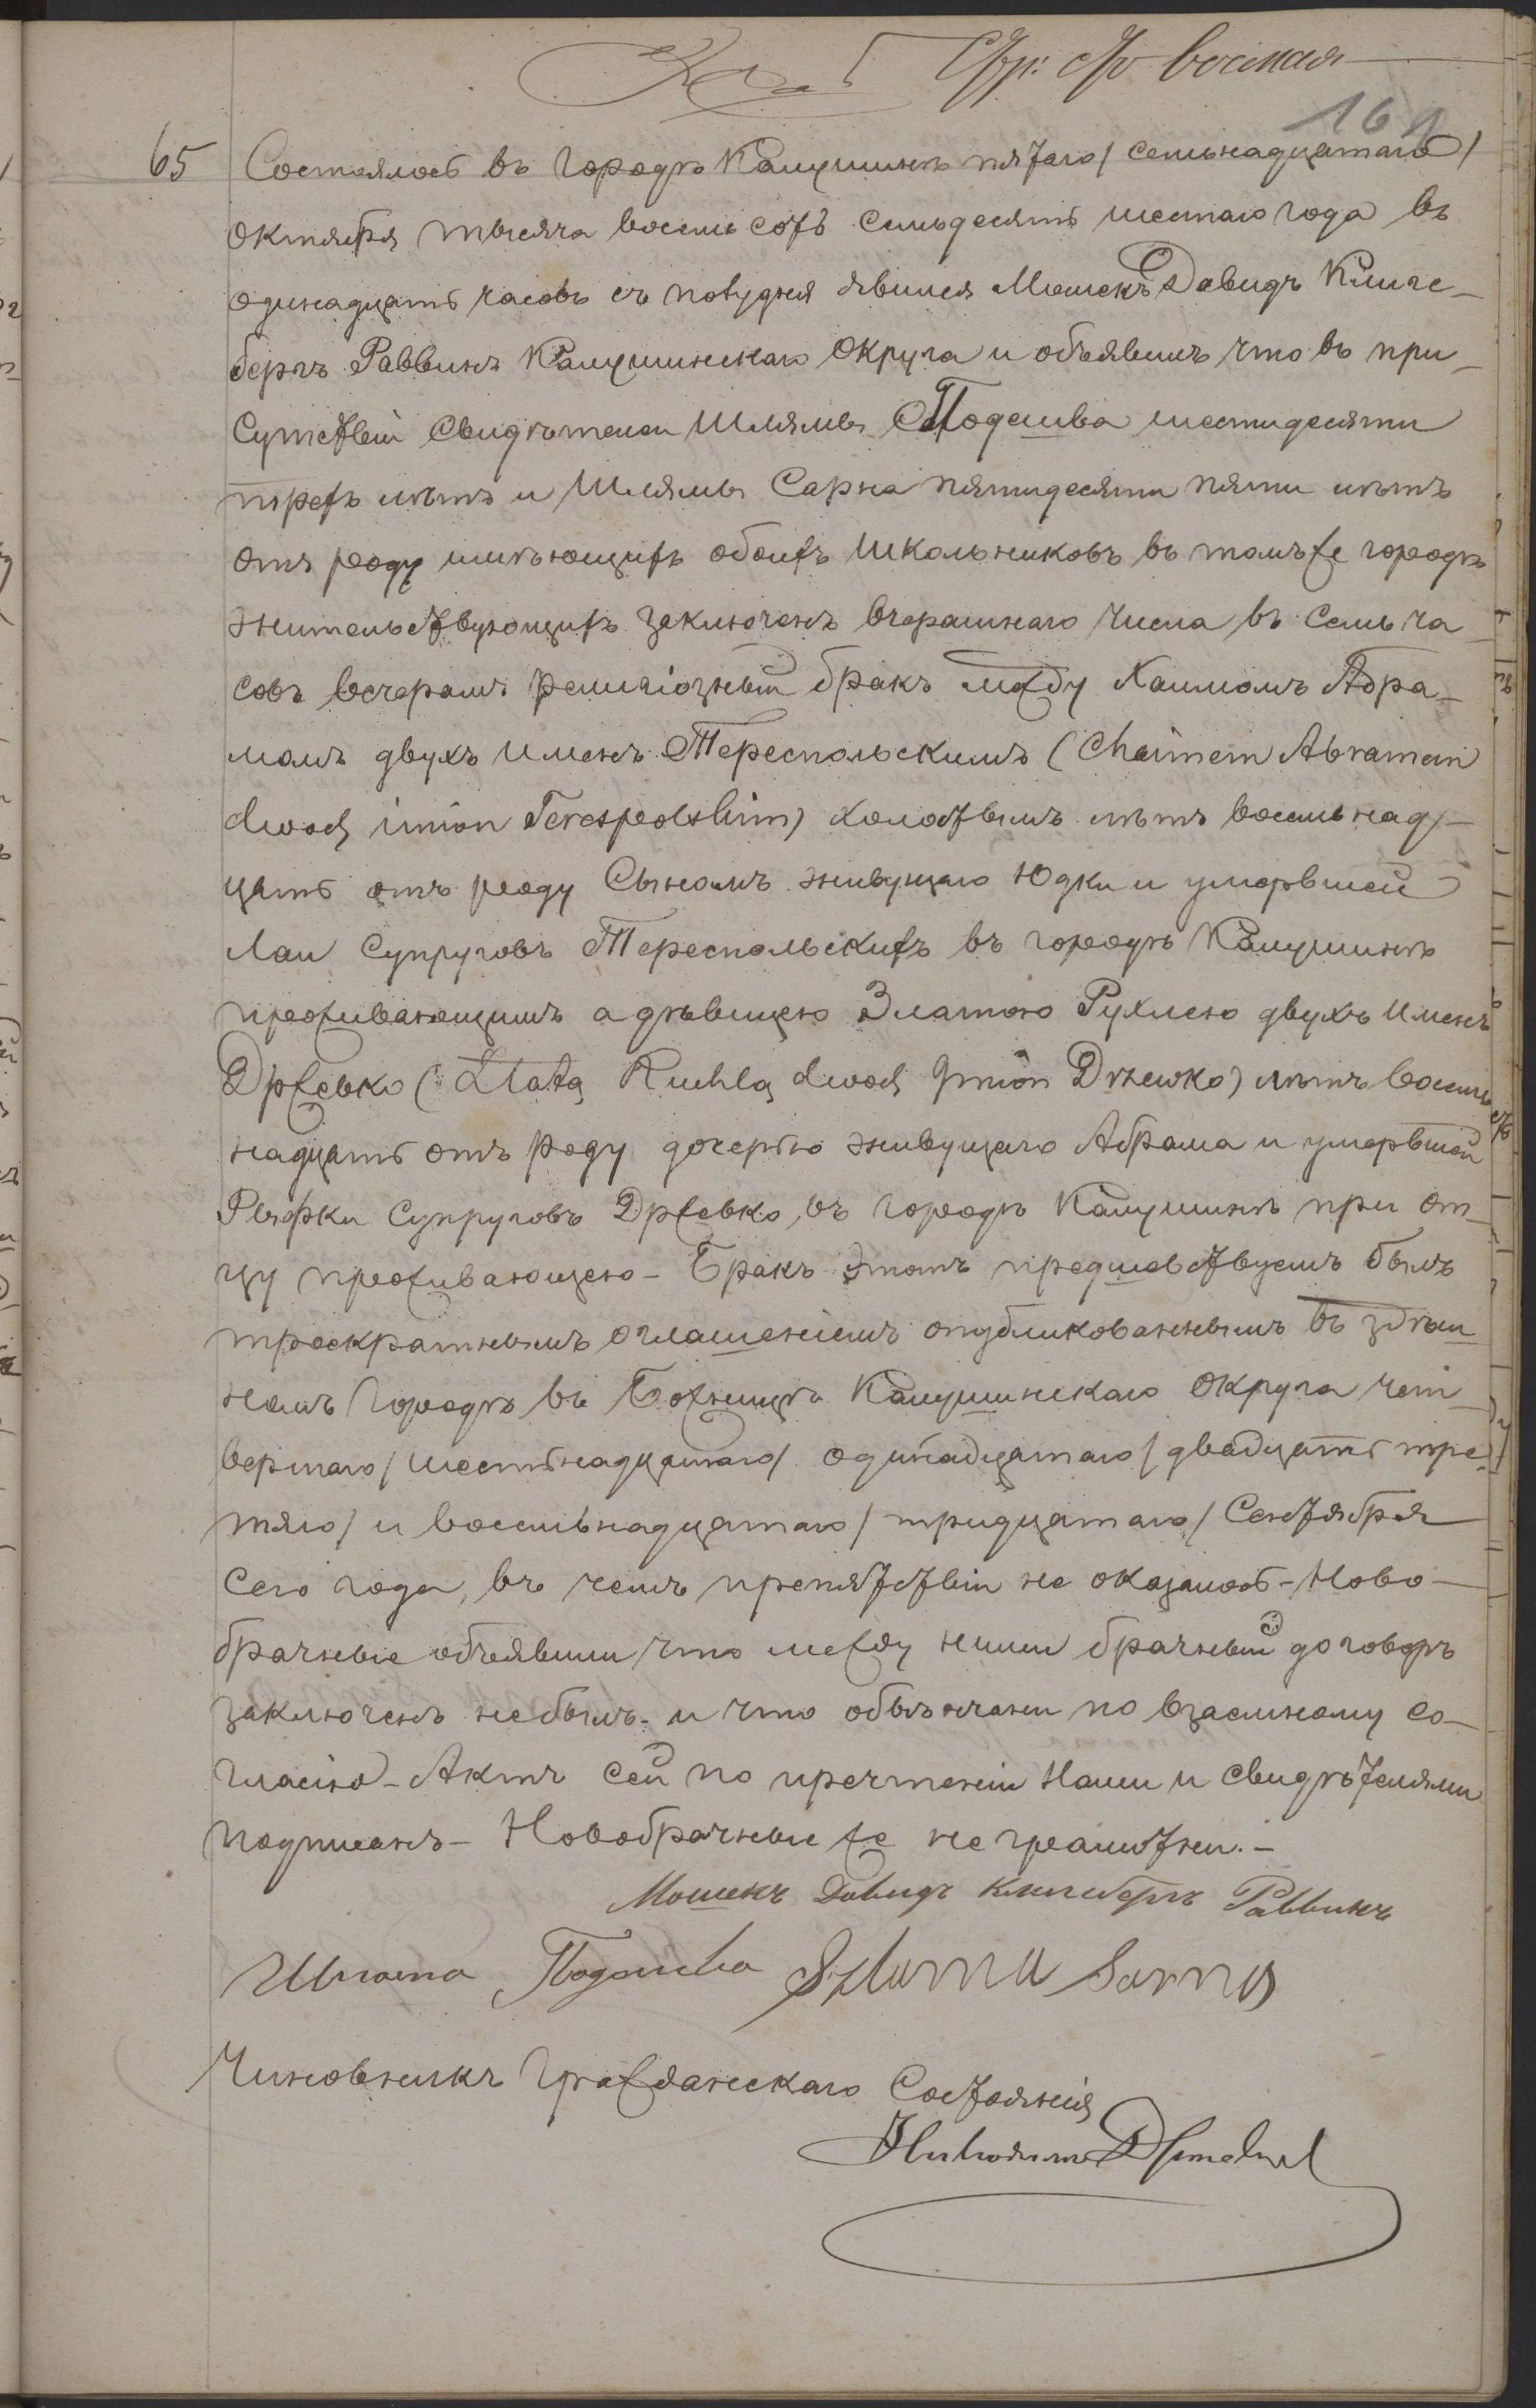 161
65 Состоялось въ городѣ Калушинѣ пятаго/семьнадцатаго/
октября тысяча восемь сотъ семьдесятъ шестаго года въ
одинадцать часовъ съ полудня явился Мошекъ Давидъ Клинг-
бергъ Раввинъ Калушинскаго Округа и объявилъ что въ при-
сутствіи свидѣтелей Шлямы Подешва шестидесяти
трехъ лѣтъ и Шлямы Сарна пятидесяти пяти лѣтъ
отъ роду имѣющихъ обоихъ школьниковъ въ томъже городѣ
жительствующихъ заключенъ вчерашнаго числа въ семь ча
совъ вечерамъ религіозный бракъ между Хаимомъ Абра-
момъ двухъ именъ Тереспольскимъ (Chaimem Abramem
dwoch imion Terespolskim) холостымъ лѣтъ восемьнад-
цать отъ роду сыномъ живущаго Юдки и умершей
Лаи супруговъ Тереспольскихъ въ городѣ Калушинѣ
проживающимъ а дѣвицею Златою Рухлею двухъ именъ
Држевко (Złatą Ruchlą dwoch Imion Drzewko) лѣтъ восемь
надцать отъ роду дочерью живущаго Абрама и умершей
Рыфки супруговъ Држевко, въ городѣ Калушинѣ при от-
цу проживающею - Бракъ этотъ предшевствуемъ былъ
троекратнымъ оглашеніемъ опубликованнымъ въ здѣш
немъ городѣ въ Божницѣ Калушинскаго Округа чет
вертаго/шестьнадцатаго/ одинадцатаго/двадцать тре-
тяго/ и восемьнадцатаго/тридцатаго/ Сентября
сего года, въ чемъ препятствіи не оказалось - Ново-
брачные объявили что между ними брачный договоръ
заключенъ небылъ - и что обвѣнчаны по взаемному со-
гласію - Актъ сей по прочтеніи Нами и свидѣтелями
подписанъ - Новобрачные же не грамотны. -
Мошекъ Давидъ Клингбергъ Раввинъ
Шлама Подешва Szlama Sarna
Чиновникъ Гражданскаго Состоянія